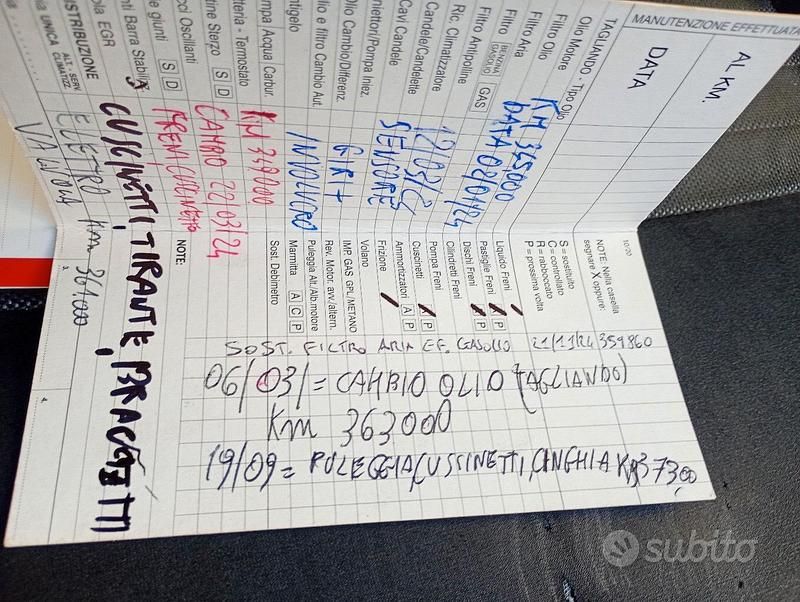 MANUTENZIONE EFFETTUATA
AL KM.
DATA
TAGLIANDO - Tipo Olio
Olio Motore
Filtro Olio
Filtro Aria
Filtro BENZINA GASOLIO GAS
Filtro Antipolline
Ric. Climatizzatore
Candele/Candelette
Cavi Candele
Iniettori/Pompa Iniez.
Olio Cambio/Differenz
Olio e filtro Cambio Aut.
Antigelo
Pompa Acqua Carbur.
Batteria - Termostato
Testine Sterzo S D
Bracci Oscillanti
Cuffie giunti S D
Barra Stabiliz
Valvola EGR
DISTRIBUZIONE
UNICA ALT. - SERV. CLIMATIZZ.
KM 345000
DATA 02/01/24
SENSORE
GIRI +
KM 349000
CAMBIO 22/03/24
FRENI
CUSCINETTI, TIRANTE, BRACCETTI
ELETTRO
VALVOLA
KM 361000
10/20
NOTE: Nella casella
segnare X oppure:
S = sostituito
C = controllato
R = rabboccato
P = prossima volta
Liquido Freni
Pastiglie Freni A P
Dischi Freni A P
Cilindretti Freni
Pompa Freni
Cuscinetti A P
Ammortizzatori A P
Frizione
Volano
IMP. GAS GPL/METANO
Rev. Motor. avv/altern.
Puleggia Alt./Alb.motore
Marmitta A C P
Sost. Debimetro
NOTE:
SOST. FILTRO ARIA E F. GASOLIO 21/11/24 359860
06/03/= CAMBIO OLIO (TAGLIANDO)
KM 363000
19/09= PULEGGIA, CUSCINETTI, CINGHIA
3.
4.
subito